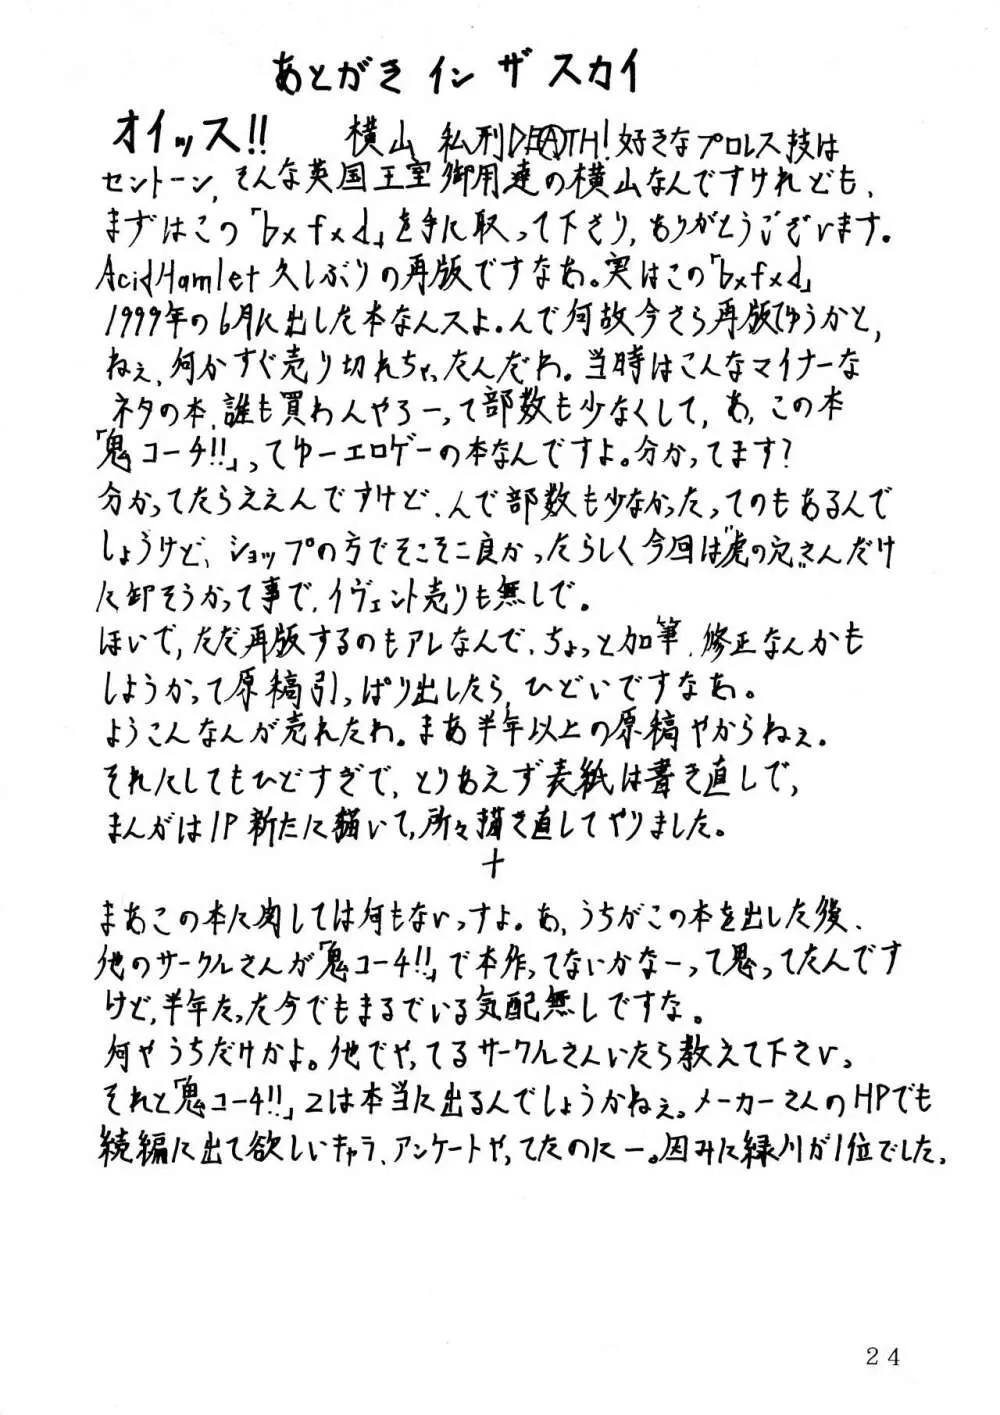 あとがき イン ザ スカイ
オイッス!! 横山 私刑DEATH! 好きなプロレス技は
セントーン, そんな英国王室御用達の横山なんですけれども、
まずはこの「bxfxd」を手に取って下さり, ありがとうございます。
AcidHamlet 久しぶりの再版ですなあ。実はこの「bxfxd」
1999年の6月に出した本なんスよ。んで何故今さら再版てゆうかと,
ねぇ、何かすぐ売り切れちゃったんだわ。当時はこんなマイナーな
ネタの本、誰も買わんやろーって部数も少なくして, あ, この本
「鬼コーチ!!」ってゆーエロゲーの本なんですよ。分かってます?
分かってたらええんですけど、んで部数も少なかったってのもあるんで
しょうけど、ショップの方でそこそこ良かったらしく今回は"虎の穴"さんだけ
に卸そうかって事で、イヴェント売りも無しで。
ほいで, ただ再版するのもアレなんで、ちょっと加筆、修正なんかも
しようかって原稿引っぱり出したら, ひどいですなあ。
ようこんなんが売れたわ。まあ半年以上の原稿やからねぇ。
それにしてもひどすぎで, とりあえず表紙は書き直しで,
まんがは1P新たに描いて, 所々描き直してやりました。
+
まあこの本に関しては何もないっすよ。あ, うちがこの本を出した後、
他のサークルさんが「鬼コーチ!!」で本作ってないかなーって思ってたんです
けど, 半年たった今でもまるでいる気配無しですな。
何やうちだけかよ。他でやってるサークルさんいたら教えて下さい。
それと「鬼コーチ!!」2は本当に出るんでしょうかねぇ。メーカーさんのHPでも
続編に出て欲しいキャラ、アンケートやってたのにー。因みに緑川が1位でした。
24